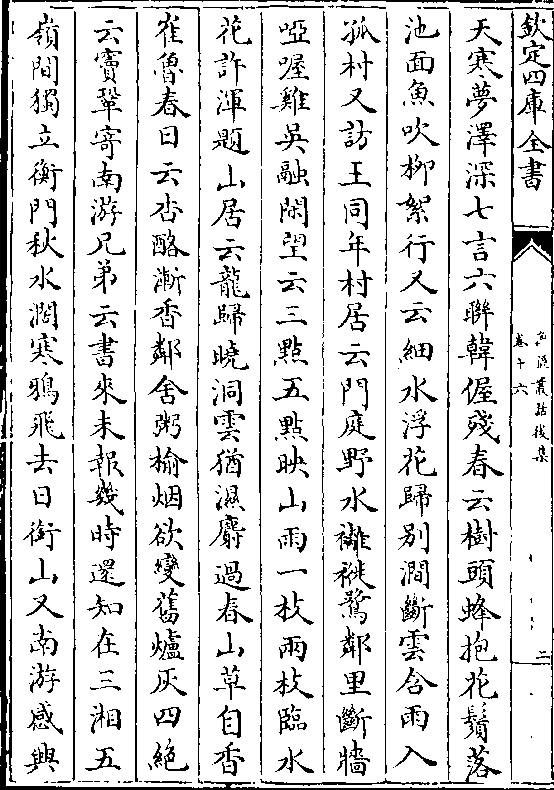 欽定四庫全書
漁隱叢話後集
卷十六
二
天寒夢澤深七言六聯韓偓殘春云樹頭蜂抱花鬚落
池面魚吹柳絮行又云細水浮花歸别澗斷雲含雨入
孤村又訪王同年村居云門庭野水𥜗褷鷺鄰里斷牆
啞喔雞吳融閑望云三點五點映山雨一枝兩枝臨水
花許渾題山居云龍歸曉洞雲猶濕麝過春山草自香
崔魯春日云杏酪漸香鄰舍粥榆烟欲變舊爐灰四絶
云竇鞏寄南游兄弟云書來未報幾時還知在三湘五
嶺間獨立衡門秋水濶寒鴉飛去日銜山又南游感興